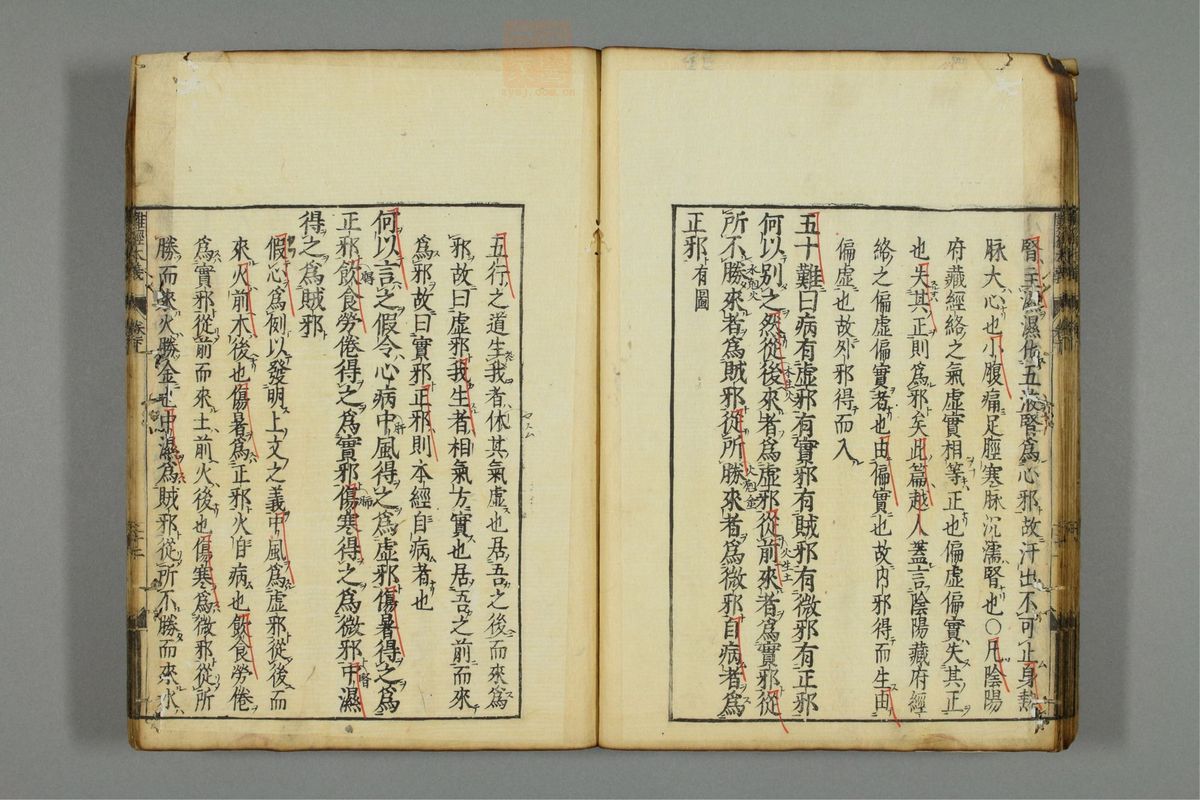 腎主濕濕傷五液腎爲心邪故汗出不可止身熱
脉大心也小腹痛足脛寒脉沉濡腎也〇凡陰陽
府藏經絡之氣虛實相等正也偏虛偏實失其正
也失其正則爲邪矣此篇越人蓋言陰陽藏府經
絡之偏虛偏實者也由偏實也故內邪得而生由
偏虛也故外邪得而入
五十難曰病有虛邪有實邪有賊邪有微邪有正邪
何以別之然從後來者爲虛邪從前來者爲實邪從
所不勝來者爲賊邪從所勝來者爲微邪自病者爲
正邪 有圖
五行之道生我者休其氣虛也居吾之後而來爲
邪故曰虛邪我生者相氣方實也居吾之前而來
爲邪故曰實邪正邪則本經自病者也
何以言之假令心病中風得之爲虛邪傷暑得之爲
正邪飲食勞倦得之爲實邪傷寒得之爲微邪中濕
得之爲賊邪
假心爲例以發明上文之義中風爲虛邪從後而
來火前木後也傷暑爲正邪火自病也飲食勞倦
爲實邪從前而來土前火後也傷寒爲微邪從所
勝而來火勝金也中濕爲賊邪從所不勝而來水
難經本義